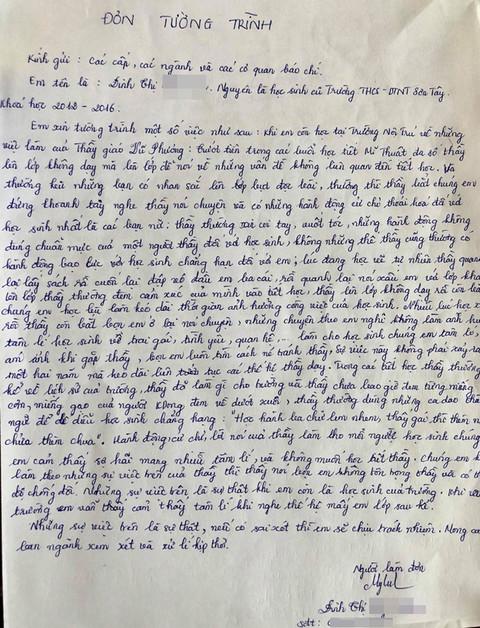 ĐƠN TƯỜNG TRÌNH
Kính gửi : Các cấp, các ngành và các cơ quan báo chí.
Em tên là : Đinh Thị . Nguyên là học sinh cũ Trường THCS - DTNT Sơn Tây.
Khoá học 2012 - 2016.
Em xin tường trình một số việc như sau : Khi em còn học tại Trường Nội Trú về những
việc làm của Thầy giáo Phương : trước tiên trong các buổi học tiết Mĩ Thuật đa số thầy
lên lớp không dạy mà lên lớp để nói về những vấn đề không liên quan đến tiết học. Và
thường kêu những bạn có nhan sắc lên lớp lục đọc loài, thường thì thầy bắt chúng em
đứng khoanh tay nghe thầy nói chuyện và có những hành động cử chỉ thoải hoá đối với
học sinh nhất là các bạn nữ : thầy thường xoi coi tay, vuốt tóc, những hành động không
đúng chuẩn mực của một người thầy đối với học sinh, không những thế thầy cũng thường có
hành động bạo lực với học sinh chẳng hạn đối với em ; lúc đang học vẽ tự nhiên thầy quay
lại lấy sách rồi cuốn lại đập vô đầu em ba cái, rồi quanh lại nói xấu em với lớp khác
lên lớp thầy thường đem cảm xúc của mình vào tiết học, thầy lên lớp không dạy rồi còn bắt
chúng em học lụi làm kéo dài thời gian ảnh hưởng công việc của học sinh. Nhiều lúc học xong
rồi thầy còn bắt bọn em ở lại nói chuyện, những chuyện theo em nghĩ không lành ảnh hưởng
tâm lí học sinh về trai gái, tình yêu, quan hệ,... làm cho học sinh chúng em tâm lo,
ám ảnh khi gặp thầy, bọn em luôn tìm cách né tránh thầy, sự việc này không phải xảy ra
một hai năm mà kéo dài liên tục các thế hệ thầy dạy. Trong các tiết học thầy thường
kể về lịch sử của trường, thầy đã làm gì cho trường và thầy chưa bao giờ đem từng miếng
cơm, miếng gạo của người KDong đem về dưới xuôi, thầy thường dùng những ca dao thành
ngữ để dè diễu học sinh chẳng hạng : "Học hành ba chữ lem nhem, thấy gái thì thèm như
chửa thèm chua". Hành động cử chỉ, lời nói của thầy làm cho mỗi người học sinh chúng
em cảm thấy sợ hãi mang nhiều tâm lí, và không muốn học tiết thầy. Chúng em không
làm theo những sự việc trên của thầy thì thầy nói bọn em không tôn trọng thầy và có thái
độ chống đối. Những sự việc trên là sự thật khi em còn là học sinh của trường. Khi về
trường em vẫn thấy cảm thấy tâm lí khi nghe thế hệ mấy em lớp sau kể.
Những sự việc trên là sự thật, nếu có sai xót thì em sẽ chịu trách nhiệm. Mong các
ban ngành xem xét và xử lí kịp thời.
Người làm đơn
Đinh Thị
sđt :